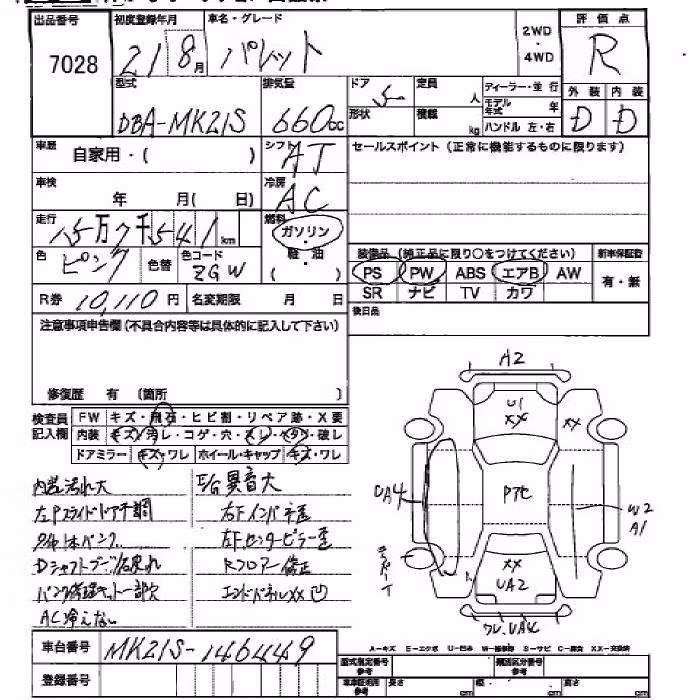 出品番号 初度登録年月 車名・グレード 2WD・4WD 評価点
7028 21 8月 パレット R
型式 排気量 ドア 定員 人 ディーラー・並行 外装 内装
DBA-MK21S 660cc 5 形状 積載 kg モデル年式 年 ハンドル 左・右 D D
車歴 自家用・( ) シフト AT セールスポイント (正常に機能するものに限ります)
車検 年 月( 日) 冷房 AC
走行 万 千 541 km 燃料 ガソリン・軽・油 ( )
色 ピンク 色替 色コード ZGW 装備品 (純正品に限り○をつけてください) 新車保証書
PS PW ABS エアB AW 有・無
R券 10,110円 名変期限 月 日 SR ナビ TV カワ
注意事項申告欄(不具合内容等は具体的に記入して下さい) 後日品
修復歴 有 (箇所 )
検査員記入欄 FW キズ・飛石・ヒビ割・リペア跡・X要
内装 キズ・汚レ・コゲ・穴・スレ・ヘタリ・破レ
ドアミラー キズ・ワレ ホイール・キャップ キズ・ワレ
内装汚れ大 E/G異音大
左Pスライドドア不調 右Fインパネ歪
タイヤ1本パンク 右Fセンターピラー歪
Dシャフトブーツ切れ Rフロアー修正
パンク修理キット一部欠 エンドパネルXX凹
AC冷えなし
A2
U1
XX
XX
UA4
Pアセ
W2
A1
XX
UA2
ワレ.UA4
A-キズ E-エクボ U-凹み W-補修跡 S-サビ C-腐食 XX-交換済
車台番号 MK21S-146449
登録番号
型式指定番号 参考 類別区分番号 参考
車車証利用 参考 長さ cm 幅 cm 高さ cm